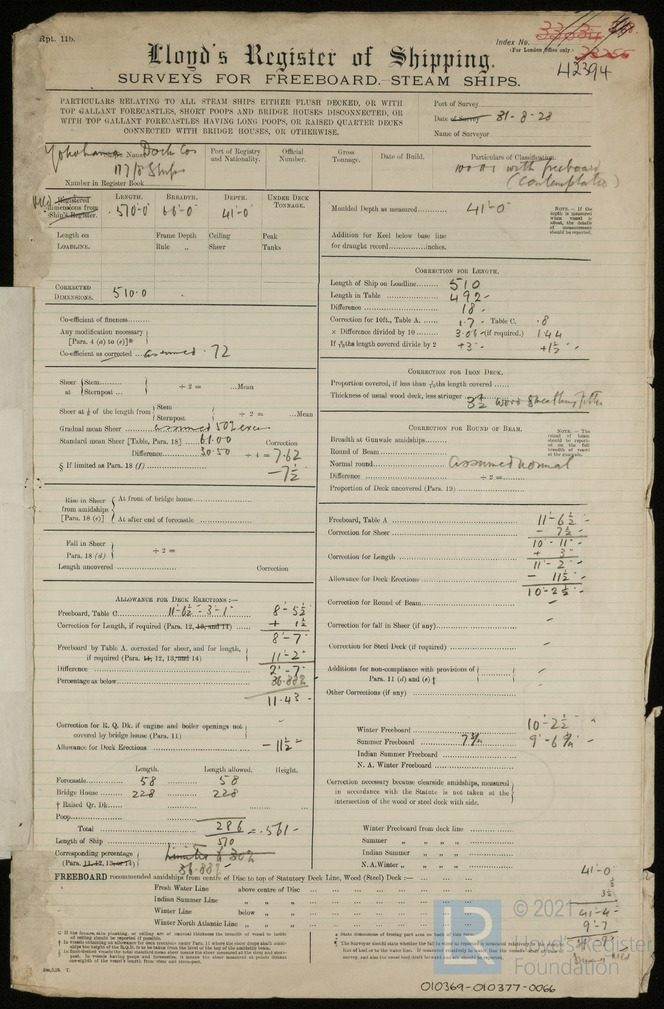 Rpt. 11b.
Index No.
(For London Office only.)
42394
Lloyd's Register of Shipping.
SURVEYS FOR FREEBOARD.—STEAM SHIPS.
PARTICULARS RELATING TO ALL STEAM SHIPS EITHER FLUSH DECKED, OR WITH
TOP GALLANT FORECASTLES, SHORT POOPS AND BRIDGE HOUSES DISCONNECTED, OR
WITH TOP GALLANT FORECASTLES HAVING LONG POOPS, OR RAISED QUARTER DECKS
CONNECTED WITH BRIDGE HOUSES, OR OTHERWISE.
Port of Survey
Date of Survey 31-8-28
Name of Surveyor
Yokohama Dock Co's
Name
Number in Register Book
Port of Registry and Nationality.
Official Number.
Gross Tonnage.
Date of Build.
Particulars of Classification.
100 A1 with freeboard
(contemplated)
Registered dimensions from Ship's Register.
LENGTH. 510-0
BREADTH. 66-0
DEPTH. 41-0
UNDER DECK TONNAGE.
Length on LOADLINE.
Frame Depth Rule
Ceiling Sheer
Peak Tanks
CORRECTED DIMENSIONS. 510.0
Co-efficient of fineness
Any modification necessary [Para. 4 (a) to (e)]*
Co-efficient as corrected assumed .72
Sheer at Stem Sternpost ÷ 2 = Mean
Sheer at ⅛ of the length from Stem Sternpost ÷ 2 = Mean
Gradual mean Sheer assumed 50%
Standard mean Sheer [Table, Para. 18] 61.00 Correction
Difference 30.50 ÷ 4 = 7.62
§ If limited as Para. 18 (f) -7½
Rise in Sheer from amidships [Para. 18 (e)]
At front of bridge house
At after end of forecastle
Fall in Sheer Para. 18 (d) ÷ 2 =
Length uncovered Correction
ALLOWANCE FOR DECK ERECTIONS :—
Freeboard, Table C 11-6½ - 3-1 8-5½
Correction for Length, if required (Para. 12, 13, and 14) + 1½
8-7
Freeboard by Table A. corrected for sheer, and for length,
if required (Para. 11, 12, 13, and 14) 11-2
Difference 2-7
Percentage as below 36.882
11.43
Correction for R. Q. Dk. if engine and boiler openings not
covered by bridge house (Para. 11)
Allowance for Deck Erections - 11½
Length. Length allowed. Height.
Forecastle 58 58
Bridge House 228 228
† Raised Qr. Dk.
Poop
Total 286 = .561
Length of Ship 510
Corresponding percentage
(Para. 11, 12, 13, or 14) 36.88%
Moulded Depth as measured 41-0
NOTE.—If the depth is measured when vessel is afloat, the details of measurement should be reported.
Addition for Keel below base line
for draught record inches.
CORRECTION FOR LENGTH.
Length of Ship on Loadline 510
Length in Table 492
Difference 18
Correction for 10ft., Table A. 1.7 Table C. .8
× Difference divided by 10 3.06 (if required.) 1.44
If ⁶⁄₁₀ths length covered divide by 2 +3 +1½
CORRECTION FOR IRON DECK.
Proportion covered, if less than ⁷⁄₁₀ths length covered
Thickness of usual wood deck, less stringer 3½ wood sheathing fitted
CORRECTION FOR ROUND OF BEAM.
NOTE.—The round of beam should be reported on the full breadth of vessel at the gunwale.
Breadth at Gunwale amidships
Round of Beam
Normal round Assumed normal
Difference ÷ 2 =
Proportion of Deck uncovered (Para. 19)
Freeboard, Table A 11-6½
Correction for Sheer - 7½
10-11
Correction for Length + 3
11-2
Allowance for Deck Erections - 11½
10-2½
Correction for Round of Beam
Correction for fall in Sheer (if any)
Correction for Steel Deck (if required)
Additions for non-compliance with provisions of
Para. 11 (d) and (e) †
Other Corrections (if any)
Winter Freeboard 10-2½
Summer Freeboard
Indian Summer Freeboard
N. A. Winter Freeboard
Correction necessary because clearside amidships, measured
in accordance with the Statute is not taken at the
intersection of the wood or steel deck with side.
Winter Freeboard from deck line
Summer „ „ „
Indian Summer „ „ „
N.A. Winter „ „ „
41-0
3½
41-4
9-7
FREEBOARD recommended amidships from centre of Disc to top of Statutory Deck Line, Wood (Steel) Deck :—
Fresh Water Line above centre of Disc
Indian Summer Line „ „
Winter Line below „ „
Winter North Atlantic Line „ „
© 2021
LR
Lloyd's Register
Foundation
010369-010377-0066